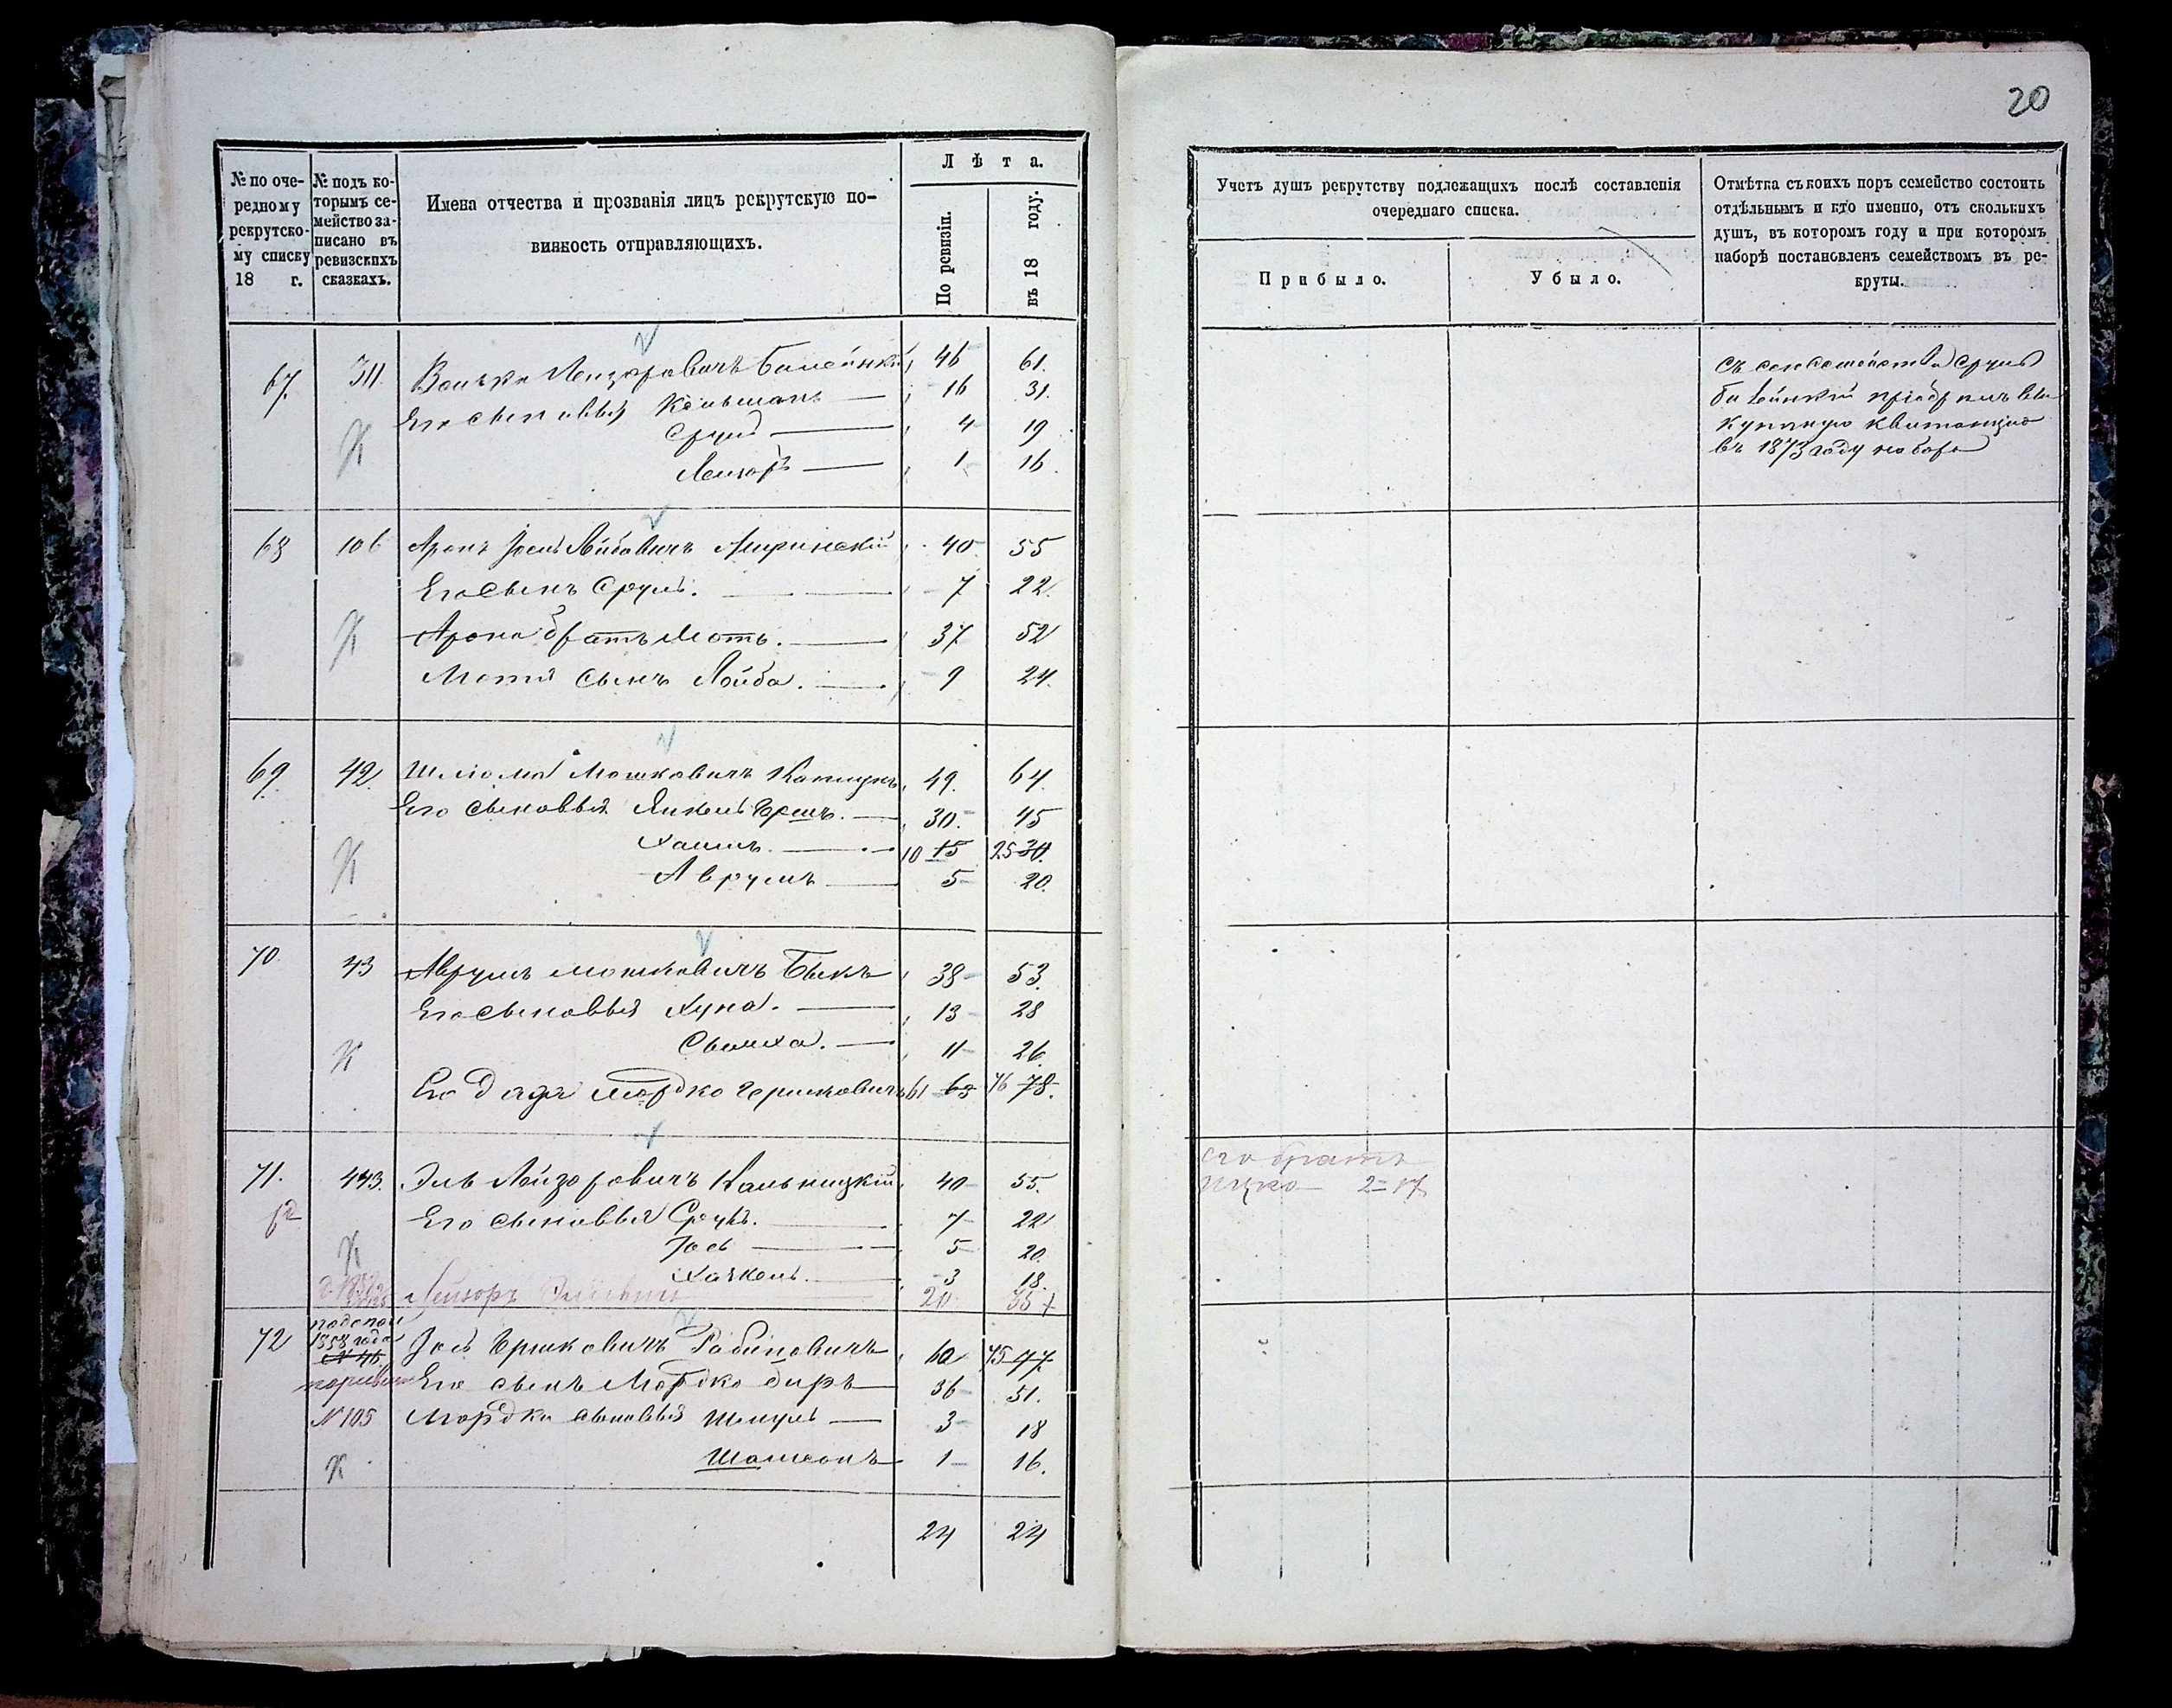 20
№ по оче-
редному
рекрутско-
му списку
18 г.
№ подъ ко-
торымъ се-
мейство за-
писано въ
ревизскихъ
сказкахъ.
Имена отчества и прозванія лицъ рекрутскую по-
винность отправляющихъ.
Лѣта.
По ревизіи.
въ 18 году.
67. 311. Лейзоровичъ 46 61.
Его сыновья Кельманъ 16 31.
Сруль 4 19
Лейзоръ 1 16.
К
68 106 Аронъ Іосъ Лейбовичъ 40 55
Его сынъ Сруль. 7 22.
Арона братъ Моть. 37 52
Мотя сынъ Лейба. 9 24.
К
69. 42. Шлiома Мошковичъ 49. 64.
Его сыновья Янкель Гершъ. 30. 45
Хаимъ. 10 15 25 30.
Аврумъ 5 20.
К
70. 43 Аврумъ Мошковичъ Быкъ 38 53.
Его сыновья Хуна. 13 28
Сымха. 11 26
Его дядя Мордко Гершковичъ 61 63 76 78.
К
71. 443. Эль Лейзоровичъ Кальницкій 40 55.
Его сыновья Сруль. 7 22
Іось 5 20.
К
Хачкель. 3 18.
Лейзоръ 20 35
72 1858 года Іось Гершковичъ Рабиновичъ 60 75 77
№ 46
Его сынъ Мордко Биръ 36 51.
№ 105 Мордки сыновья Шмуль 3 18
К
Шамсонъ 1 16.
24 24
Учетъ душъ рекрутству подлежащихъ послѣ составленія
очереднаго списка.
Прибыло.
Убыло.
Отмѣтка съ коихъ поръ семейство состоитъ
отдѣльнымъ и кто именно, отъ сколькихъ
душъ, въ которомъ году и при которомъ
наборѣ поставленъ семействомъ въ ре-
круты.
Сруль
купную квитанцію
въ 1873 году набора
его братъ
Ицко 2 = 17